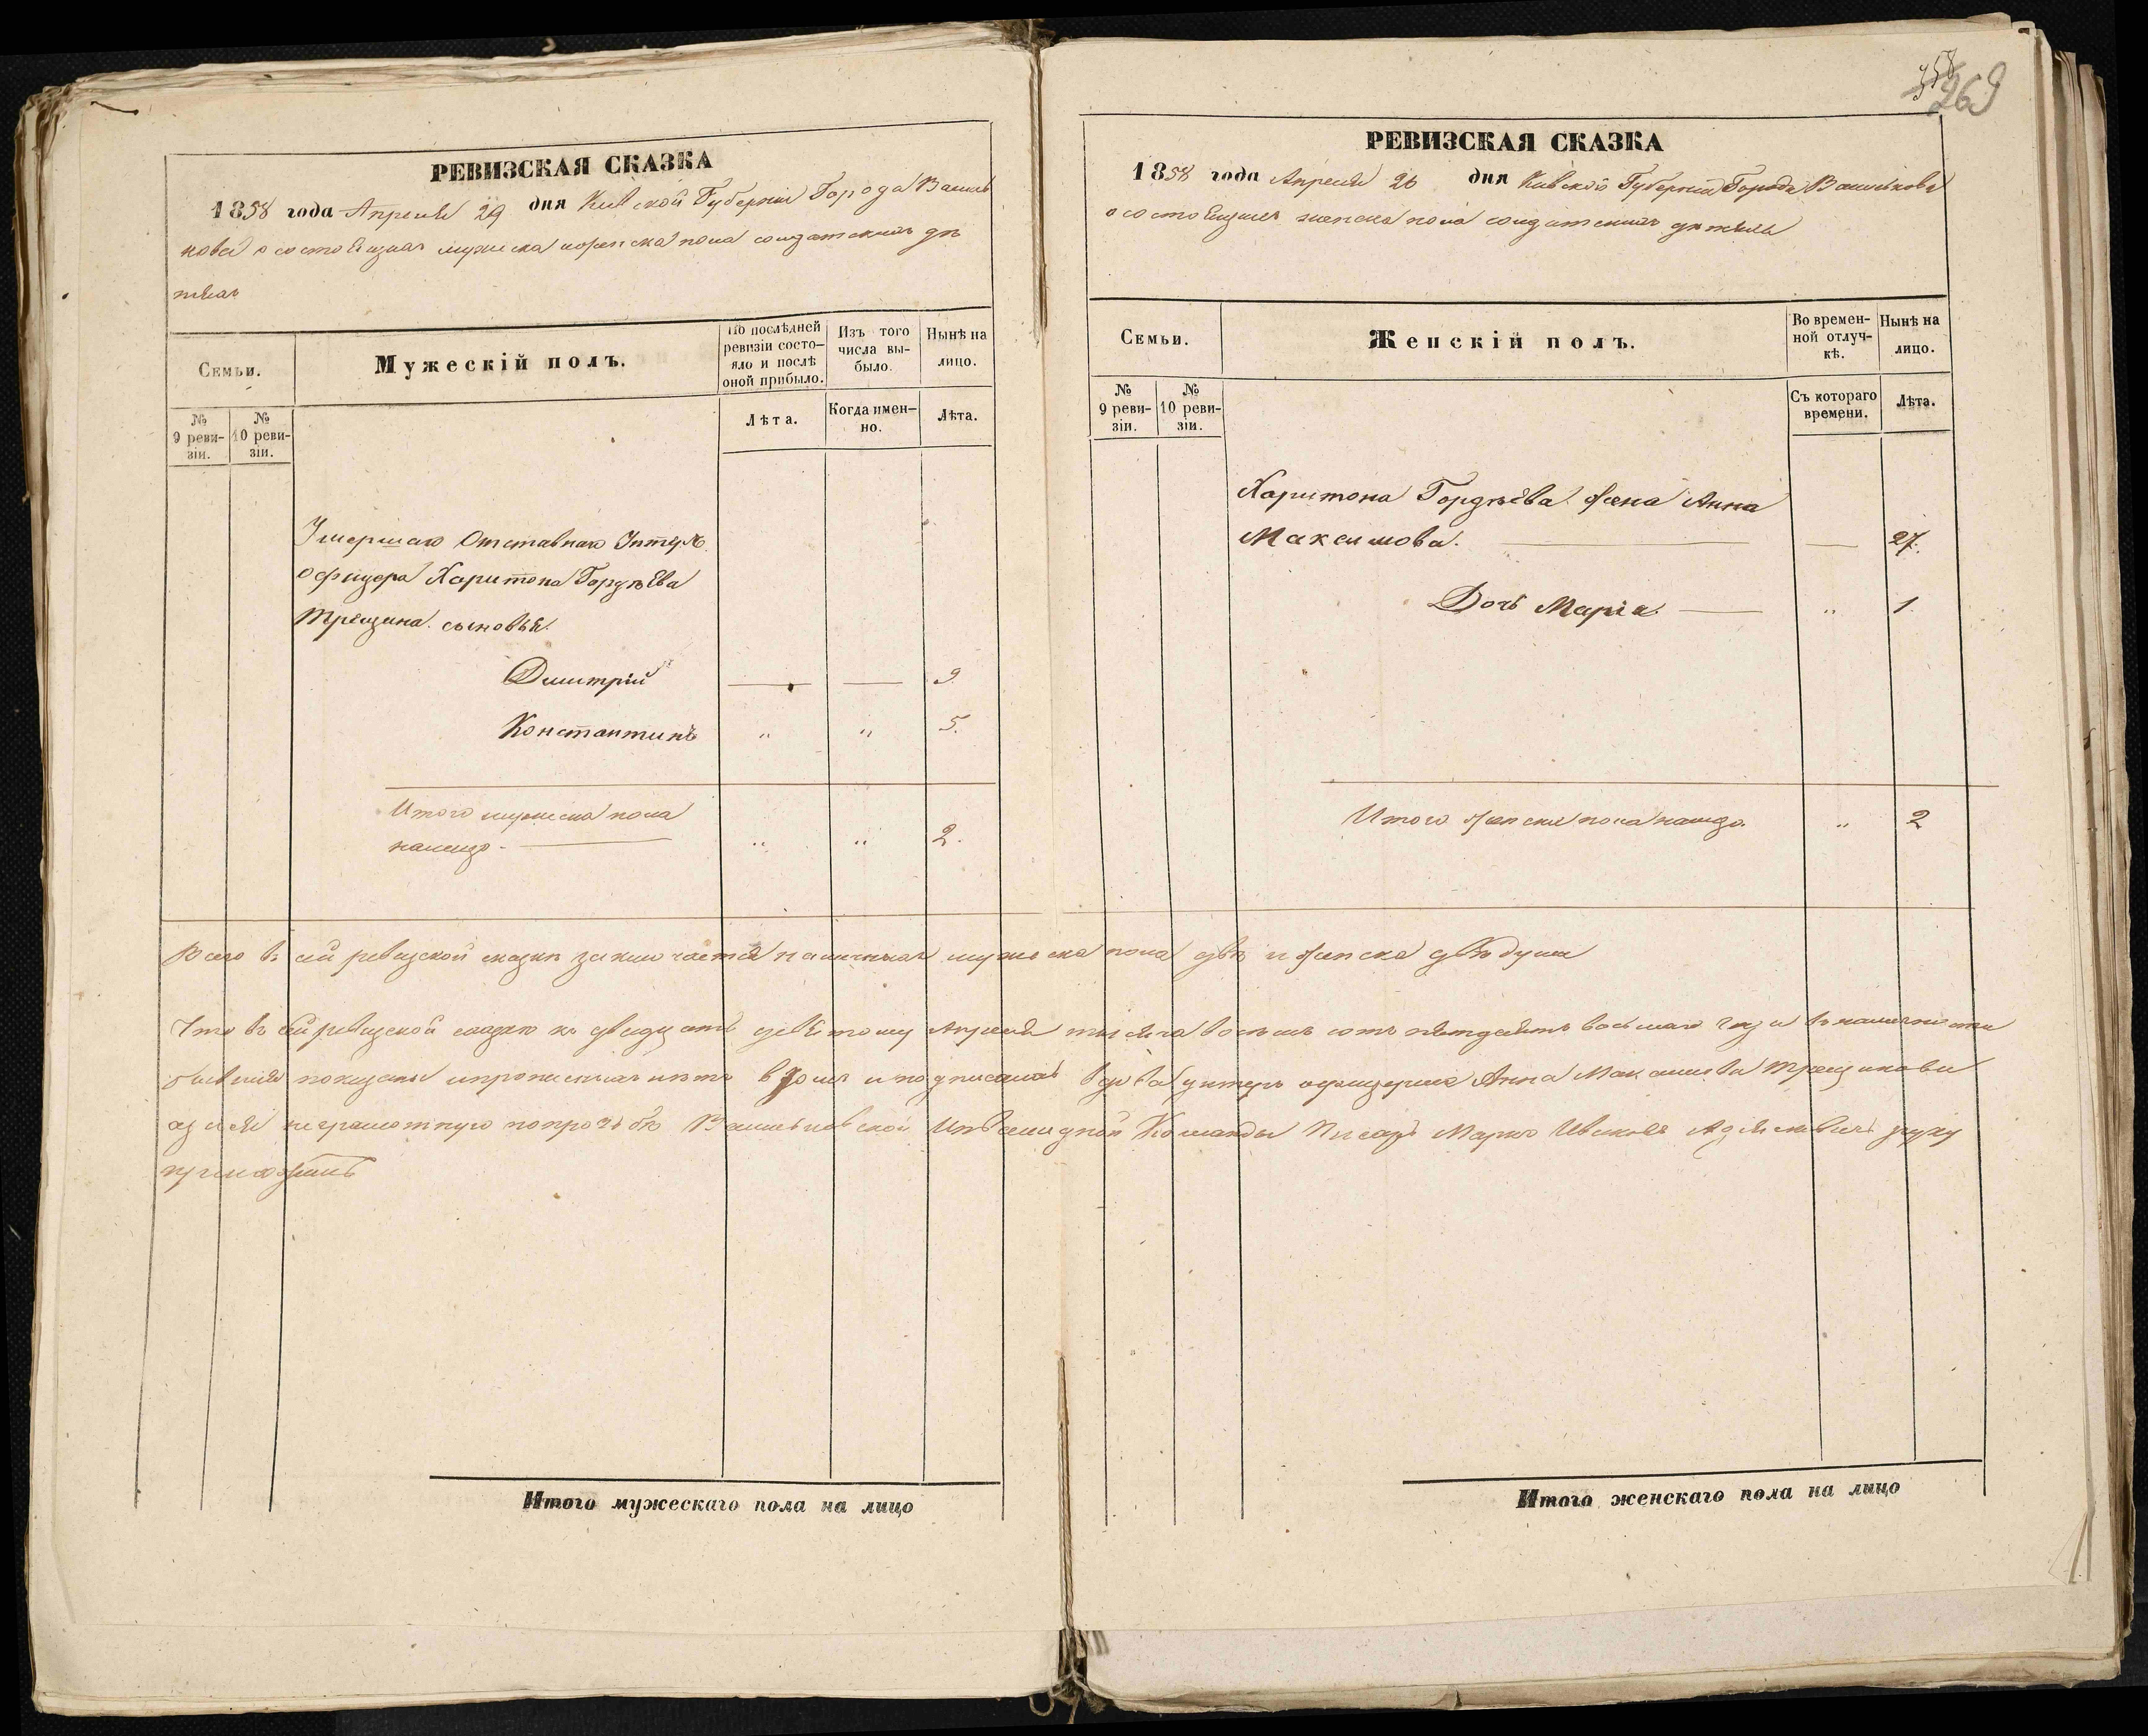 РЕВИЗСКАЯ СКАЗКА
1858 года Апреля 29 дня Киевской Губернии Города Василь
кова о состоящихъ мужеска и женска пола солдатскихъ дѣ
тяхъ
Семьи.
Мужескій полъ.
По послѣдней ревизіи состояло и послѣ оной прибыло.
Изъ того числа выбыло.
Нынѣ на лицо.
№ 9 ревизіи.
№ 10 ревизіи.
Лѣта.
Когда именно.
Лѣта.
Умершаго Отставнаго Унтеръ
офицера Харитона Гордѣева
Трещина сыновья
Дмитрій — — 9.
Константинъ „ „ 5.
Итого мужеска пола
налицо — „ „ 2.
358
269
РЕВИЗСКАЯ СКАЗКА
1858 года Апреля 26 дня Киевской Губернии Города Василькова
о состоящихъ женска пола солдатскихъ дѣтяхъ
Семьи.
Женскій полъ.
Во временной отлучкѣ.
Нынѣ на лицо.
№ 9 ревизіи.
№ 10 ревизіи.
Съ котораго времени.
Лѣта.
Харитона Гордѣева жена Анна
Максимова. — — 27.
Дочь Марія — „ 1
Итого женска пола налицо. „ 2
Всего въ сей ревизской сказкѣ заключается наличныхъ мужеска пола двѣ и женска двѣ души
Что въ сей ревизской сказке къ двадцать девятому Апреля тысяча восемь сотъ пятдесятъ восьмаго года въ наличности
бывшия показаны и прописныхъ нѣтъ въ томъ и подписалась вдова унтеръ офицерша Анна Максимова Трещинова
а за нея неграмотную по прозьбе Васильковской Инвалидной Команды Писарь Марко руку
приложилъ
Итого мужескаго пола на лицо
Итого женскаго пола на лицо